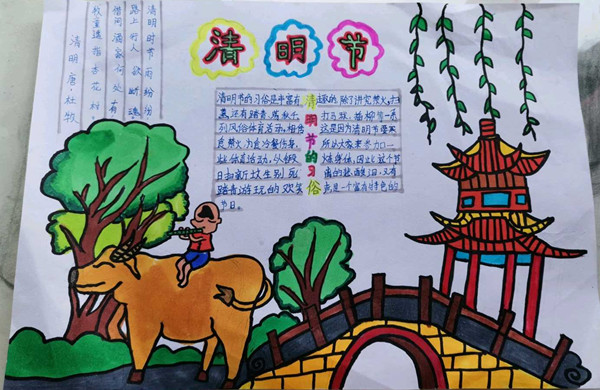 清明节
清明时节 雨纷纷
路上行人 欲断魂
借问酒家何处有
牧童遥指杏花村
清明 唐·杜牧
清明节的习俗
清明节的习俗是丰富有趣的,除了讲究禁火、扫
墓,还有踏青、荡秋千、打马球、插柳等一系
列风俗体育活动。相传这是因为清明节要寒
食禁火,为 食冷餐伤身,所以大家来参加一
些体育活动,以锻炼身体。因此,这个节
日扫新坟生别死离的悲酸泪,又有
踏青游玩的欢笑声,是一个富有特色的
节日。